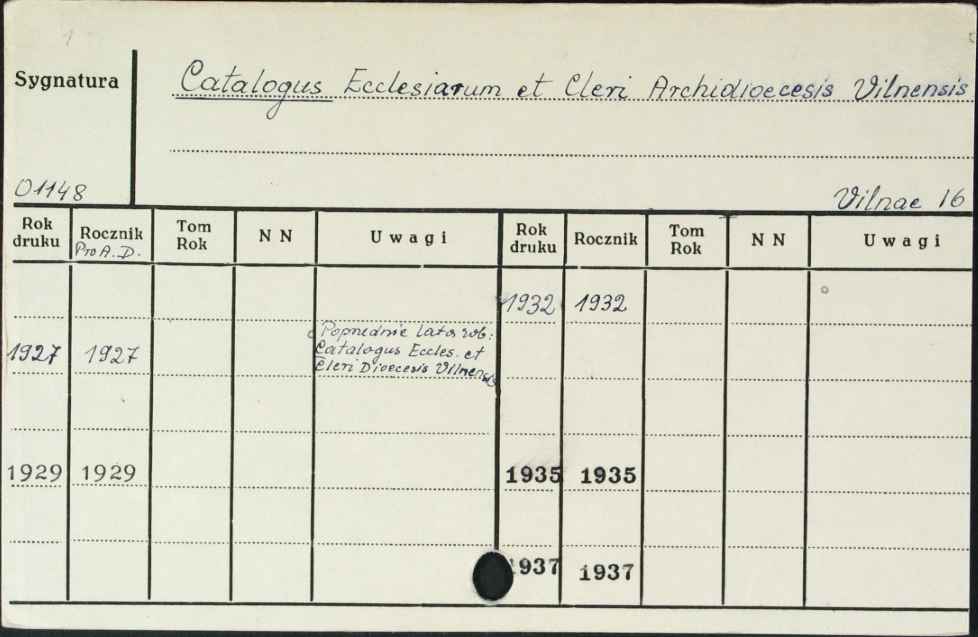 1
Sygnatura
Catalogus Ecclesiarum et Cleri Archidioecesis Vilnensis
O1148
Vilnae 16
Rok druku Rocznik Pro A.D. Tom Rok N N Uwagi Rok druku Rocznik Tom Rok N N Uwagi
1932 1932
1927 1927
Poprzednie lata zob:
Catalogus Eccles. et
Cleri Dioecesis Vilnensis
1929 1929 1935 1935
1937 1937